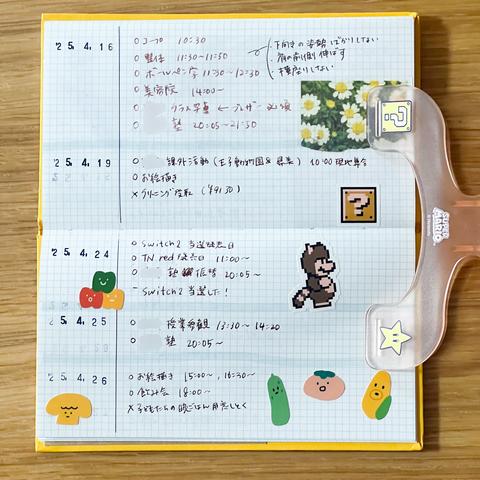 '25. 4. 16
○コープ 10:30
○整体 11:30~11:50
・下向きの姿勢ばかりしない
・肩の前側伸ばす
・横座りしない
○ボールペン字 11:30~12:30
○美容院 14:00~
○ クラス写真 ← ブレザー必須
○ 塾 20:05~21:30
'25. 4. 19
○ 課外活動(王子動物園& ) 10:00現地集合
○お絵描き
×クリーニング受取
'25. 4. 24
○Switch2 当選発表日
○TN red 発売日 11:00~
○ 塾 振替 20:05~
- Switch2 当選した!
'25. 4. 25
○ 授業参観 13:30~14:20
○ 塾 20:05~
'25. 4. 26
○お絵描き 15:00~, 16:30~
○飲み会 18:00~
×子どもたちの晩ごはん用意しとく
SUPER MARIO